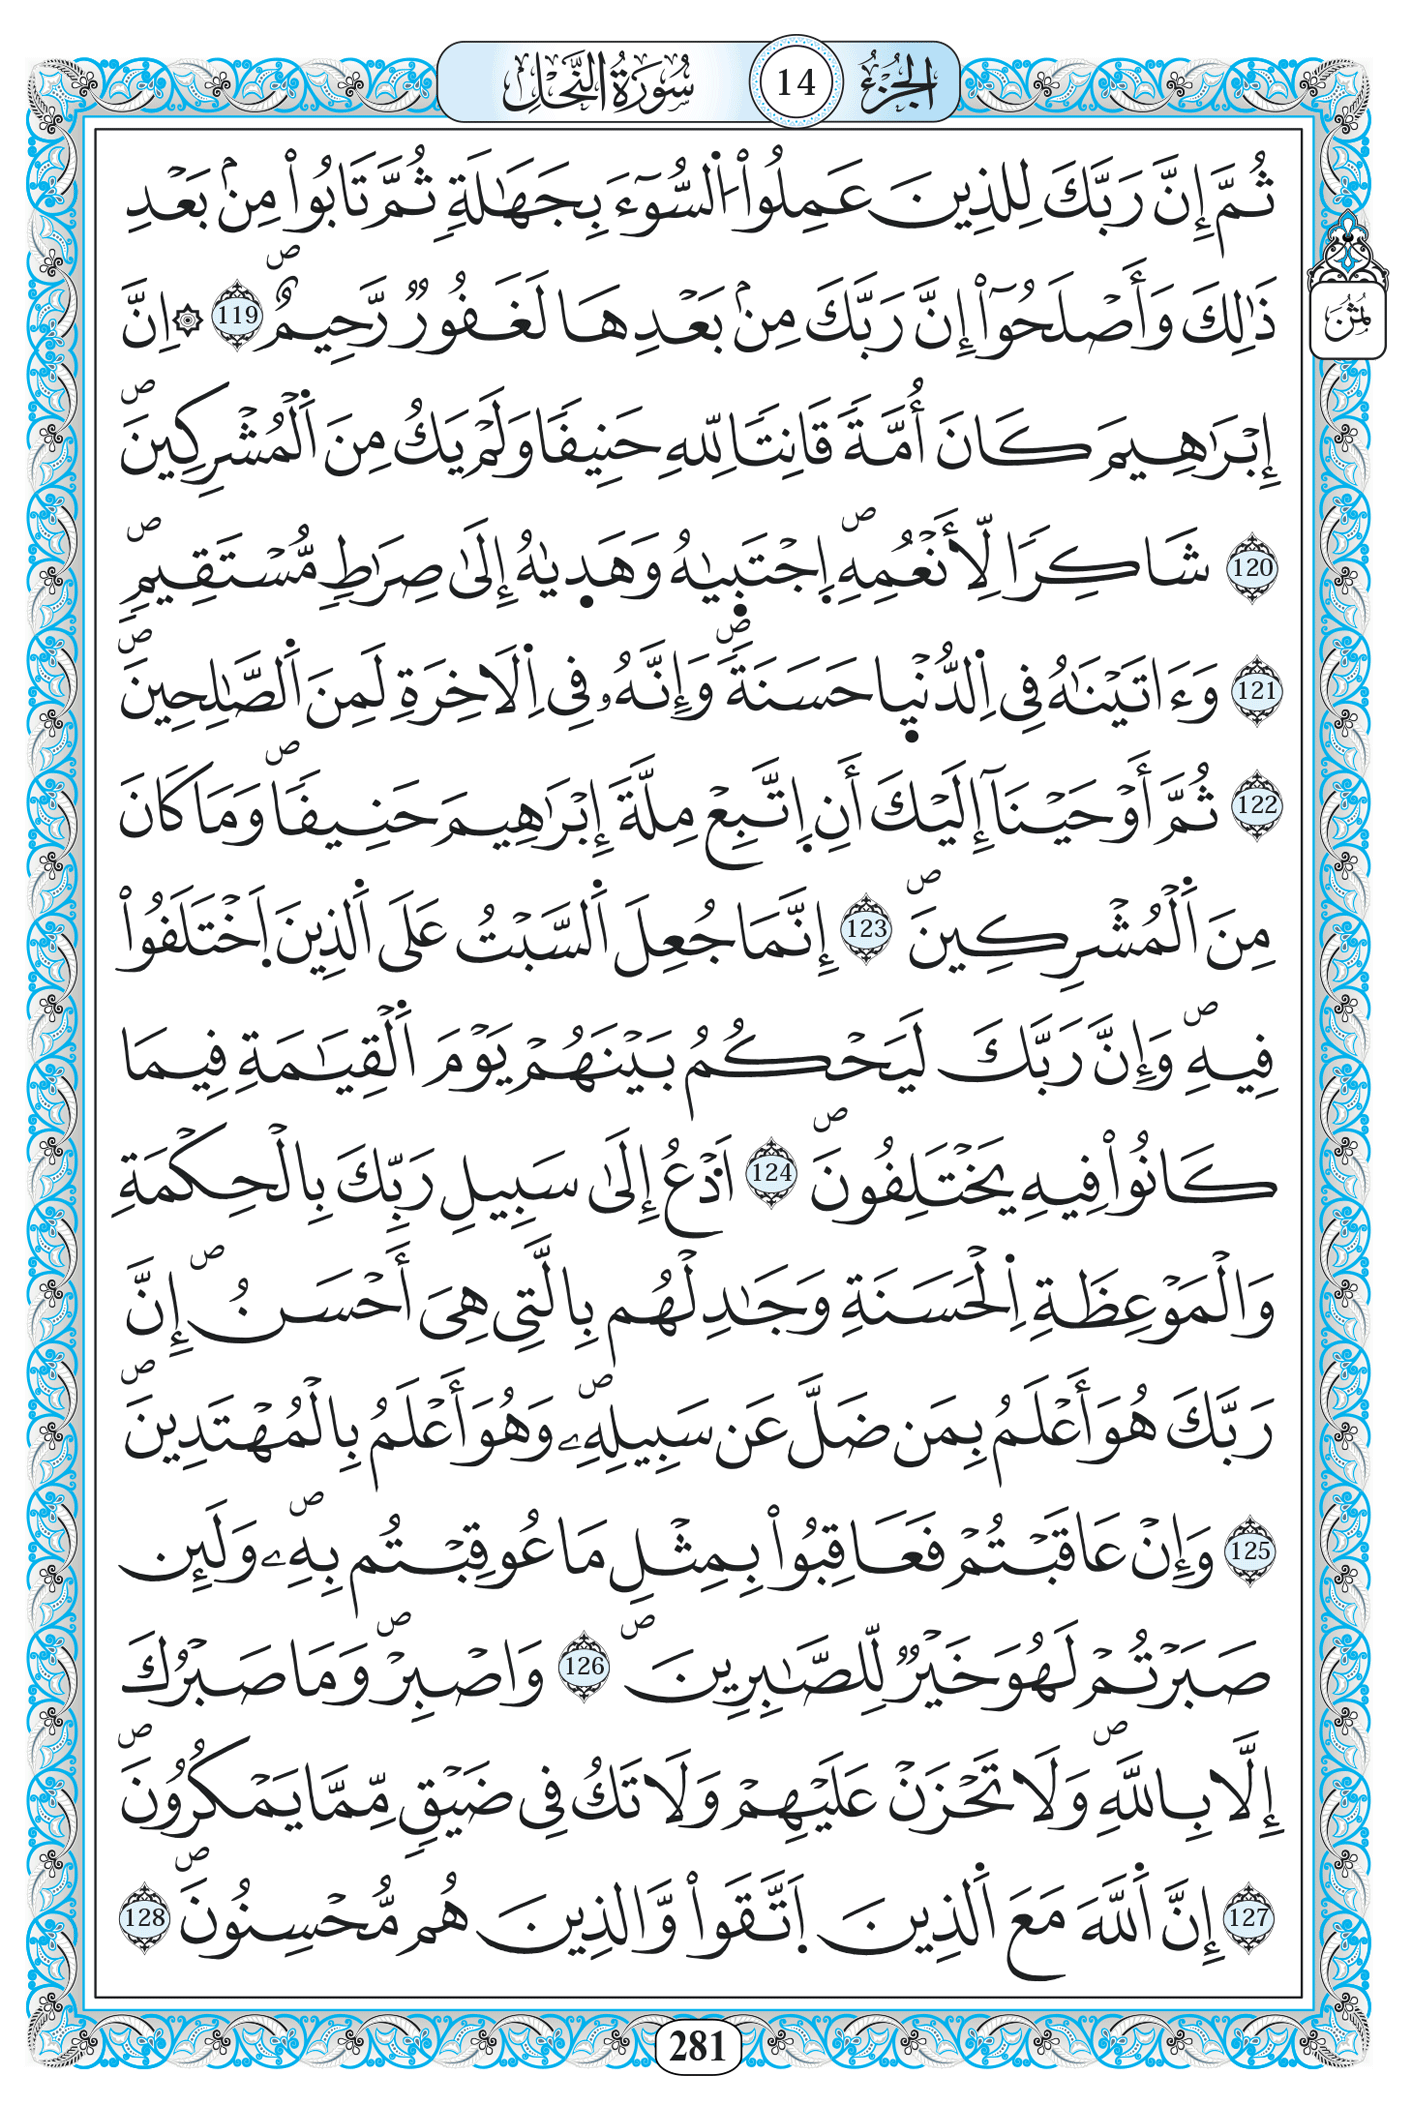 الجزء 14 سورة النحل
ثُمَّ إِنَّ رَبَّكَ لِلذِينَ عَمِلُواْ اُ۬لسُّوٓءَ بِجَهَٰلَةٖ ثُمَّ تَابُواْ مِنۢ بَعْدِ
ذَٰلِكَ وَأَصْلَحُوٓاْ إِنَّ رَبَّكَ مِنۢ بَعْدِهَا لَغَفُورٞ رَّحِيمٌۖ 119 ۞ اِنَّ
ثُمُن
إِبْرَٰهِيمَ كَانَ أُمَّةٗ قَانِتٗا لِلهِ حَنِيفٗا وَلَمْ يَكُ مِنَ اَ۬لْمُشْرِكِينَۖ
120 شَاكِرٗا لِّأَنْعُمِهِۖ اِ۪جْتَب۪يٰهُ وَهَد۪يٰهُ إِلَىٰ صِرَٰطٖ مُّسْتَقِيمٖۖ
121 وَءَاتَيْنَٰهُ فِي اِ۬لدُّنْي۪ا حَسَنَةٗۖ وَإِنَّهُۥ فِي اِ۬لَاخِرَةِ لَمِنَ اَ۬لصَّٰلِحِينَۖ
122 ثُمَّ أَوْحَيْنَآ إِلَيْكَ أَنِ اِ۪تَّبِعْ مِلَّةَ إِبْرَٰهِيمَ حَنِيفٗاۖ وَمَا كَانَ
مِنَ اَ۬لْمُشْرِكِينَۖ 123 إِنَّمَا جُعِلَ اَ۬لسَّبْتُ عَلَى اَ۬لذِينَ اَ۪خْتَلَفُواْ
فِيهِۖ وَإِنَّ رَبَّكَ لَيَحْكُمُ بَيْنَهُمْ يَوْمَ اَ۬لْقِيَٰمَةِ فِيمَا
كَانُواْ فِيهِ يَخْتَلِفُونَۖ 124 اَ۟دْعُ إِلَىٰ سَبِيلِ رَبِّكَ بِالْحِكْمَةِ
وَالْمَوْعِظَةِ اِ۬لْحَسَنَةِ وَجَٰدِلْهُم بِالَّتِي هِيَ أَحْسَنُۖ إِنَّ
رَبَّكَ هُوَ أَعْلَمُ بِمَن ضَلَّ عَن سَبِيلِهِۦۖ وَهُوَ أَعْلَمُ بِالْمُهْتَدِينَۖ
125 وَإِنْ عَاقَبْتُمْ فَعَاقِبُواْ بِمِثْلِ مَا عُوقِبْتُم بِهِۦۖ وَلَئِن
صَبَرْتُمْ لَهُوَ خَيْرٞ لِّلصَّٰبِرِينَۖ 126 وَاصْبِرْۖ وَمَا صَبْرُكَ
إِلَّا بِاللَّهِۖ وَلَا تَحْزَنْ عَلَيْهِمْ وَلَا تَكُ فِي ضَيْقٖ مِّمَّا يَمْكُرُونَۖ
127 إِنَّ اَ۬للَّهَ مَعَ اَ۬لذِينَ اَ۪تَّقَواْ وَّالذِينَ هُم مُّحْسِنُونَۖ 128
281